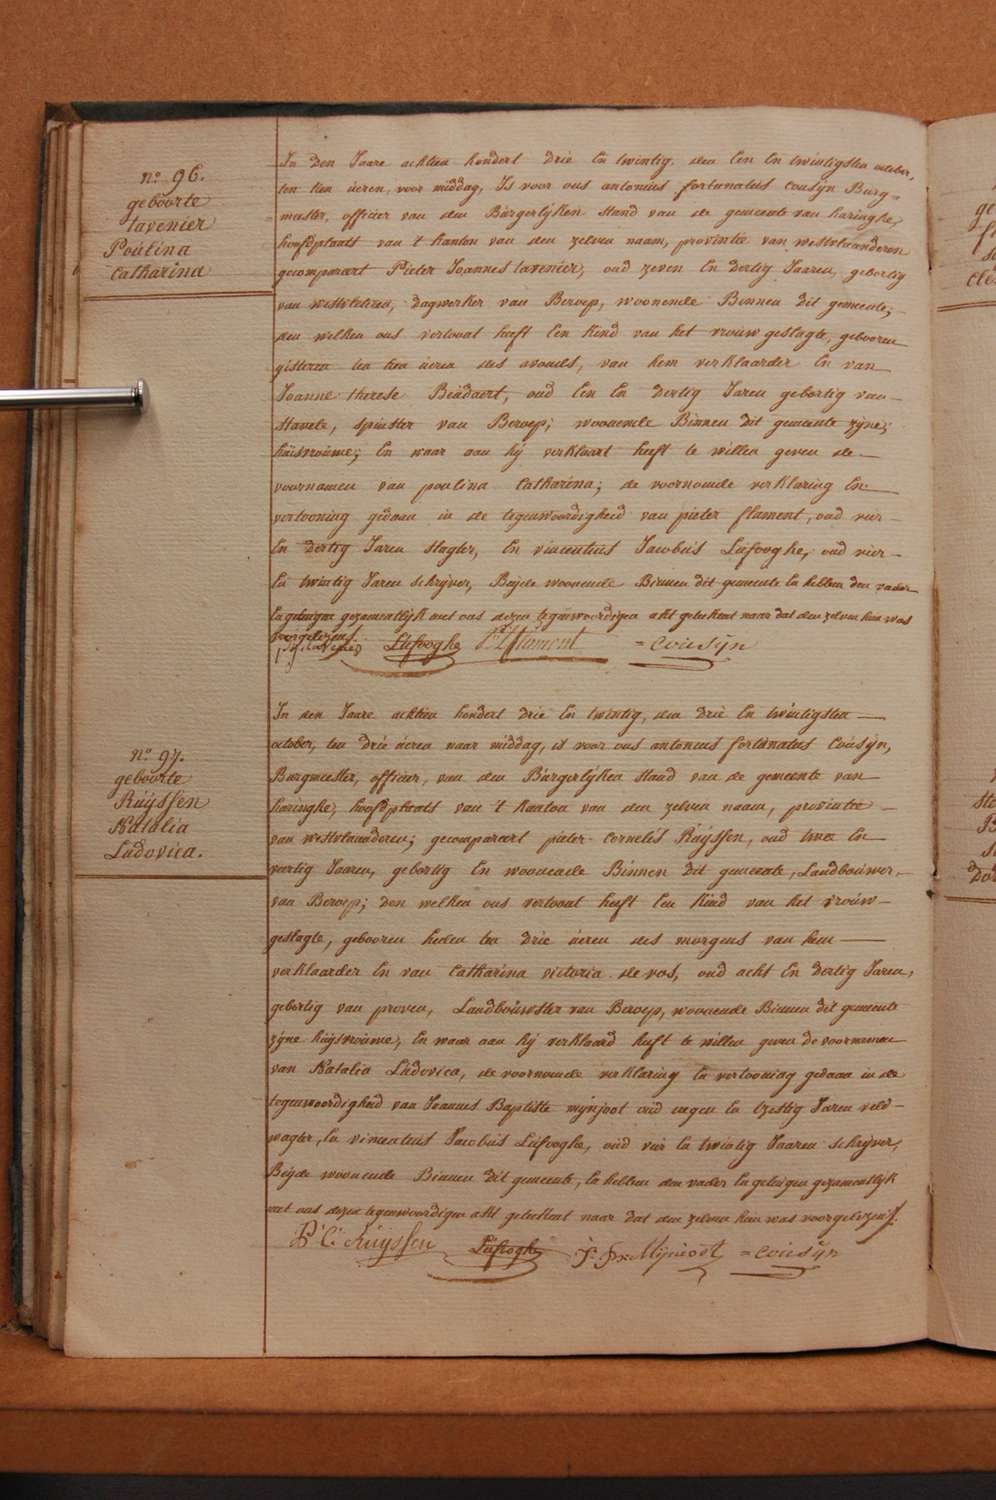 n.º 96.
geboorte
tavenier
Poulina
Catharina
In den Jaare achtien hondert drie En twintig, den Een En twintigsten october,
ten tien ùeren, voor middag, Is voor ons antonius fortunatus Cousÿn Burg=
meester, officier van den Bùrgerlijken Stand van de gemeente van haringhe,
hoofdplaats van 't kanton van den zelven naam, provintie van westvlaanderen
gecomparart Pieter Joannes tavenier, oud zeven En dertig Jaaren, geboortig
van westvleteren, dagwerker van Beroep, woonende Binnen dit gemeente;
den welken ons vertoont heeft Een Kind van het vrouw geslagte, gebooren
gisteren ten tien ùeren des avonds, van hem verklaarder En van
Joanne therese Beùdaert, oud Een En dertig Jaren gebortig van
Stavele, spinster van Beroep; woonende Binnen dit gemeente zÿne;
hùisvroùwe; En waar aan hÿ verklaart heeft te willen geven de
voornamen van poulina Catharina; de voornoemde verklaring En
vertooning gedaan in de tegenwoordigheid van pieter flament, oud vier
En dertig Jaren slagter, En vincentiùs Jacobùs Lùfooghe, oud vier
En twintig Jaren schrÿver, Beÿde woonende Binnen dit gemeente En hebben den vader
En getuigen gezamentlÿk met ons dezen tegenwoordigen akt geteekent naar dat den zelven hùn was
voorgelezens.
p: j: tavenier Lùfooghe P. flament = Coùsÿn
n.º 97.
geboorte
Rùÿssen
Natalia
Lùdovica.
In den Jaare achtien hondert drie En twintig, den drie En twintigsten
october, ten drie ùeren naar middag, is voor ons antonius fortùnatus Coùsÿn,
Burgmeester, officier, van den Bùrgerlÿken Stand van de gemeente van
haringhe, hoofdplaats van 't kanton van den zelven naam, provintie
van westvlaanderen; gecomparcert pieter Cornelis Rùÿssen, oud twee En
veertig Jaaren, gebortig En woonende Binnen dit gemeente, Landbouwer,
van Beroep; den welken ons vertoont heeft Een Kind van het vroùw
geslagte, gebooren heden ten drie ùeren des morgens van hem
verklaarder En van Catharina victoria de vos, oud acht En dertig Jaren,
gebortig van proven, Landboùwster van Beroep, woonende Binnen dit gemeente
zÿne hùÿsvroùwe, En waar aan hÿ verklaard heeft te willen geven de voornamen
van Natalia Lùdovica, de voornoemde verklaring En vertooning gedaan in de
tegenwoordigheid van Joannes Baptiste mÿnjoot oùd negen En tzestig Jaren veld
wagter, En vincentius Jacobùs Lùfooghe, oùd vier En twintig Jaaren schrÿver,
Beÿde woonende Binnen dit gemeente, En hebben den vader En getuigen gezamentlÿk
met ons dezen tegenwoordigen akt geteekent naar dat den zelven hun was voorgelezens.
P: C: Rùÿssen Lùfooghe J: Bte Mÿnjoot = Coùsÿn